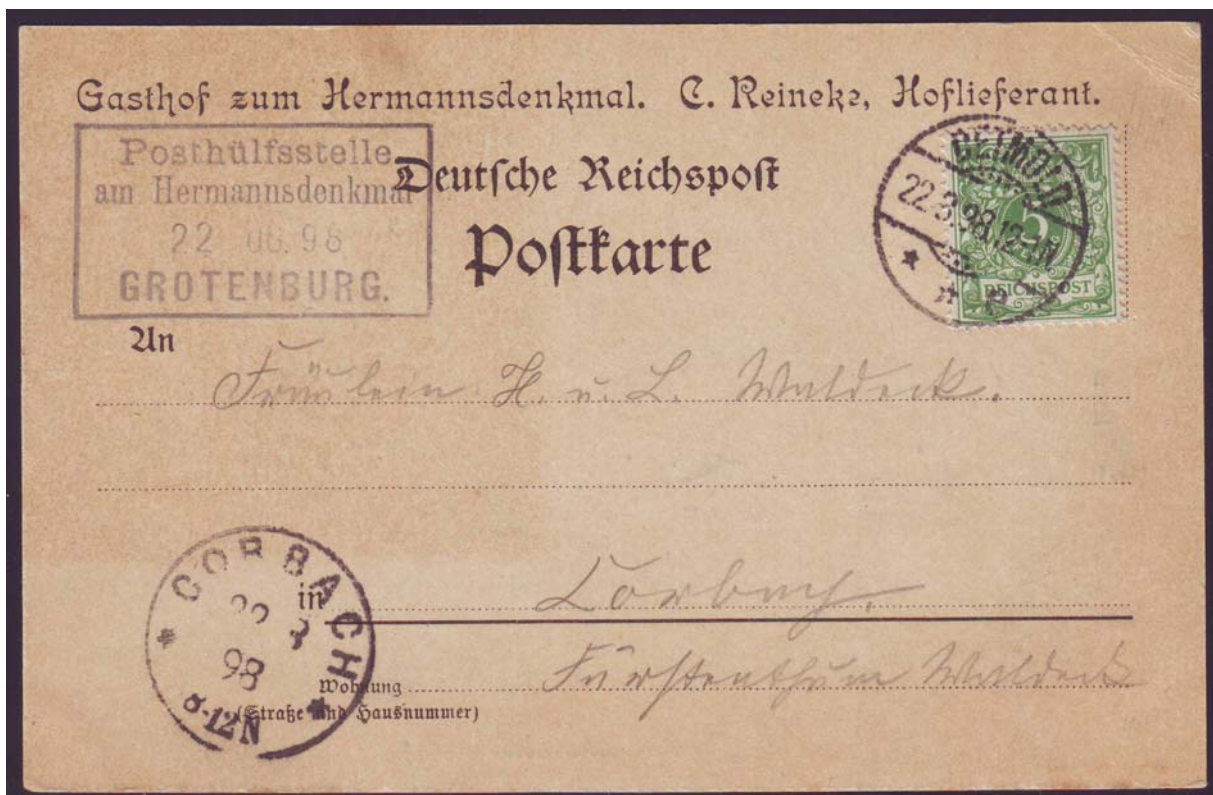 Gasthof zum Hermannsdenkmal. C. Reineke, Hoflieferant.
Posthülfsstelle
am Hermannsdenkmal
22 08.98
GROTENBURG.
Deutsche Reichspost
Postkarte
DETMOLD
22.8.98.12-1N
5
REICHSPOST
An
Fräulein H. u. L. Waldeck.
in Corbach.
Fürstenthum Waldeck
Wohnung
(Straße und Hausnummer)
CORBACH
8
98
8-12N